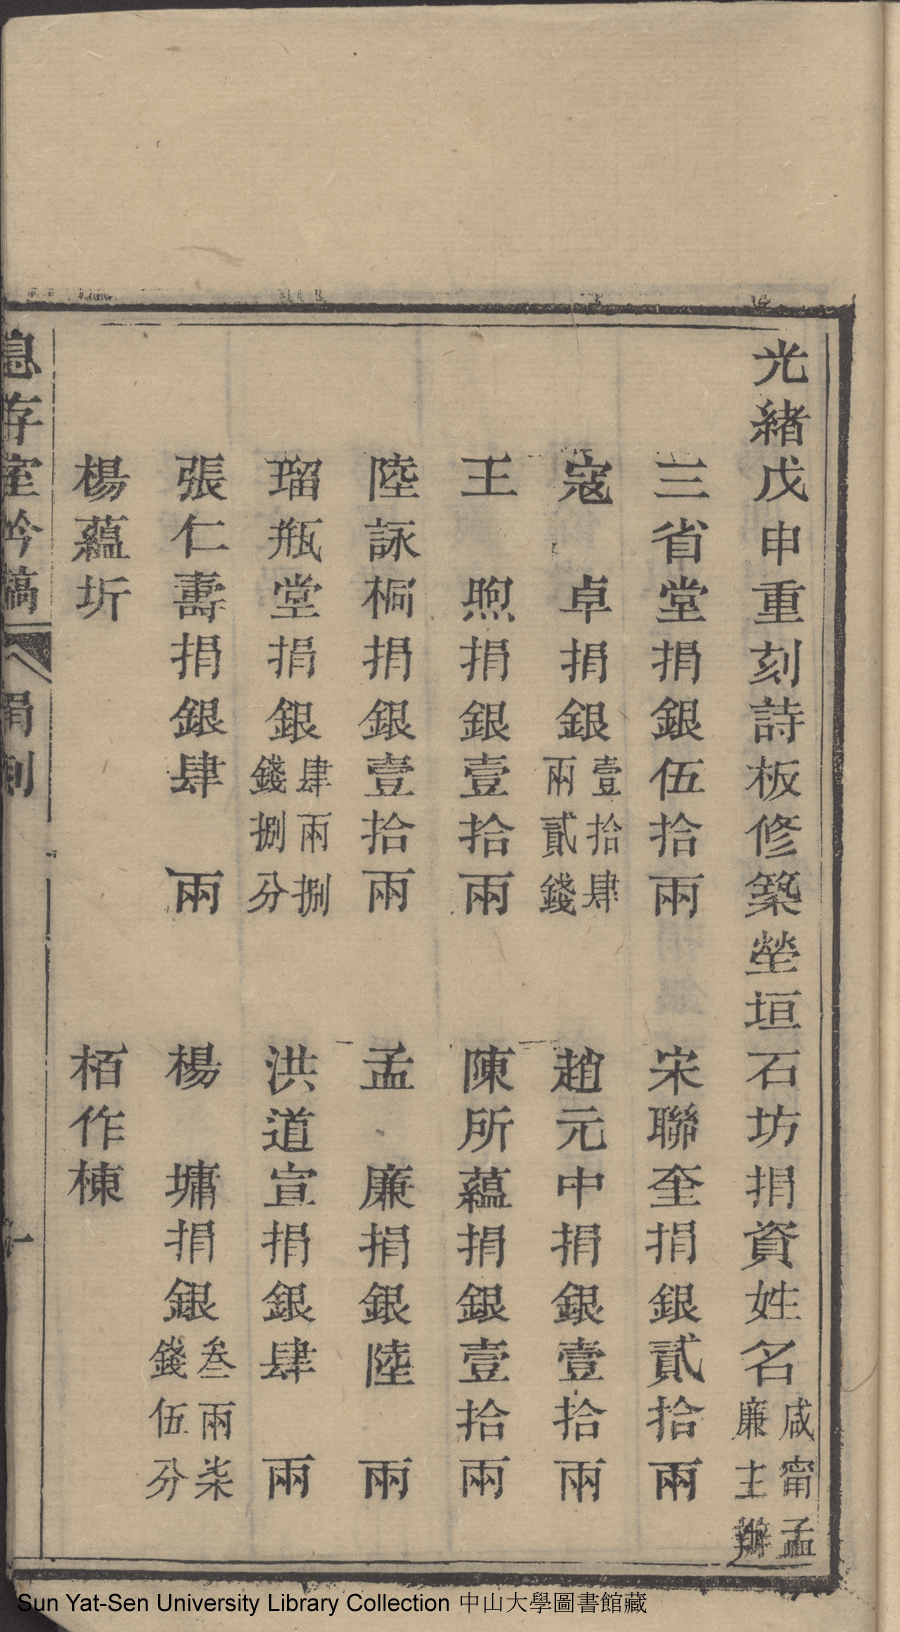 光緒戊申重刻詩板修築塋垣石坊捐資姓名咸甯孟廉主辦
三省堂捐銀伍拾兩　宋聯奎捐銀貳拾兩
寇　卓捐銀壹拾肆兩貳錢　趙元中捐銀壹拾兩
王　煦捐銀壹拾兩　陳所蘊捐銀壹拾兩
陸詠桐捐銀壹拾兩　孟　廉捐銀陸　兩
瑠瓶堂捐銀肆兩捌錢捌分　洪道宣捐銀肆　兩
張仁壽捐銀肆　兩　楊　墉捐銀叁兩柒錢伍分
楊蘊圻　栢作棟
息存室吟稿　捐刻
Sun Yat-Sen University Library Collection 中山大學圖書館藏